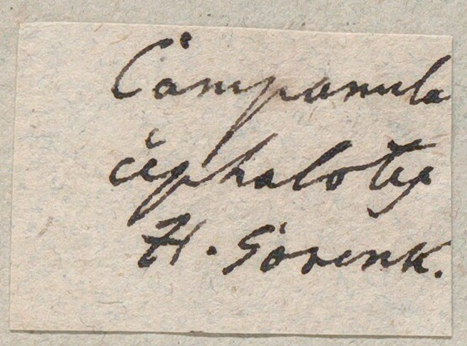 Campanula
cephalotes
H. Gorenk.